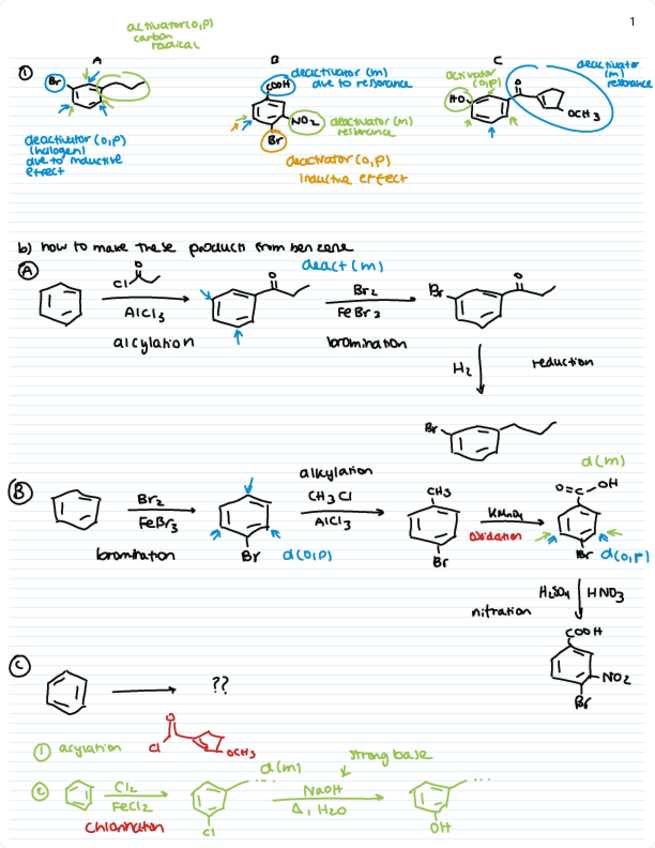 1
activator(o,p)
carbon
radical
①
A
B
C
Br
deactivator (o,p)
(halogen)
due to inductive
effect
COOH
deactivator (m)
due to resonance
NO2
deactivator (m)
resonance
Br
deactivator (o,p)
inductive effect
activator
(o,p)
HO
O
OCH3
deactivator
(m)
resonance
b) how to make these products from benzene
A
Cl
O
AlCl3
alcylation
O
deact (m)
Br2
FeBr3
bromination
Br
O
H2
reduction
Br
B
Br2
FeBr3
bromination
Br
d(o,p)
alkylation
CH3Cl
AlCl3
CH3
Br
KMnO4
oxidation
d(m)
O=C-OH
Br
d(o,p)
H2SO4
HNO3
nitration
COOH
NO2
Br
C
??
① acylation
O
Cl
OCH3
② Cl2
FeCl2
chlorination
d(m)
...
Cl
strong base
NaOH
Δ, H2O
...
OH